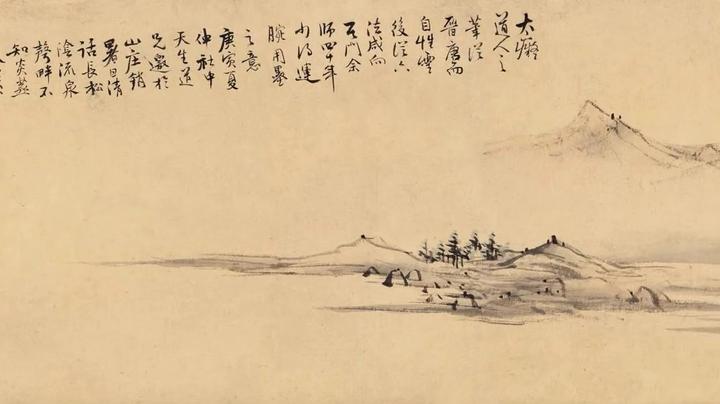 大癡
道人之
筆從
晉唐而
自性靈
後從六
法咸向
其門余
師四十年
少得運
腕用墨
之意
庚寅夏
仲社中
天生道
兄邀於
山庄銷
暑日清
話長松
陰流泉
聲畔不
知炎蒸